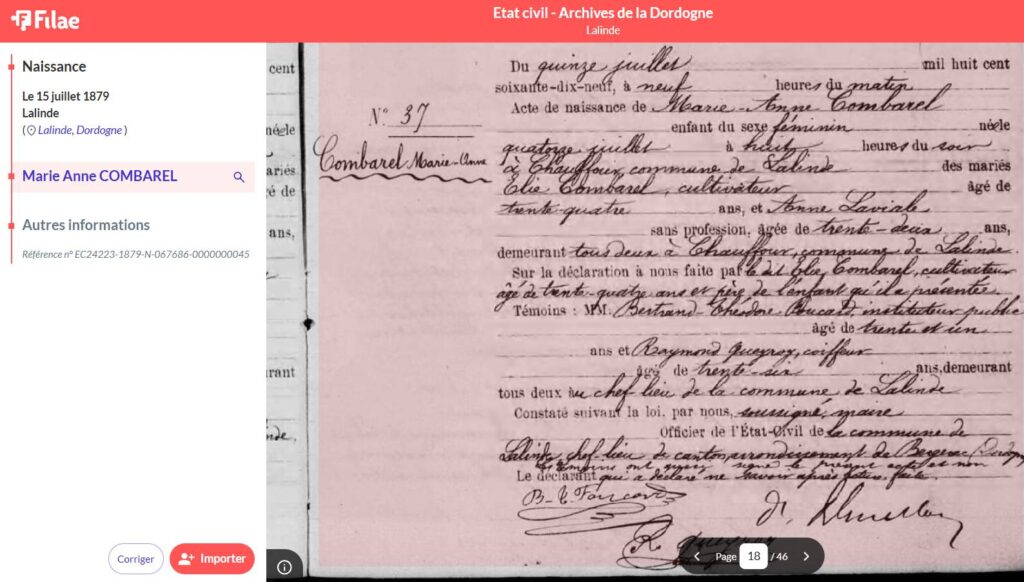 Filae
Etat civil - Archives de la Dordogne
Lalinde
Naissance
Le 15 juillet 1879
Lalinde
( Lalinde, Dordogne )
Marie Anne COMBAREL
Autres informations
Référence n° EC24223-1879-N-067686-0000000045
Corriger
Importer
cent
né⸗le
ariés
gé de
ans,
urant
nde,
N° 37
Combarel Marie-Anne
Du quinze juillet mil huit cent
soixante-dix-neuf, à neuf heures du matin
Acte de naissance de Marie-Anne Combarel
enfant du sexe féminin né⸗le
quatorze juillet à huit heures du soir
à Chauffour, commune de Lalinde des mariés
Elie Combarel, cultivateur âgé de
trente-quatre ans, et Anne Laviale
sans profession, âgée de trente-deux ans,
demeurant tous deux à Chauffour, commune de Lalinde.
Sur la déclaration à nous faite par le dit Elie Combarel, cultivateur
âgé de trente-quatre ans et père de l'enfant qu'il a présenté.
Témoins : MM. Bertrand-Théodore instituteur public
âgé de trente et un
ans et Raymond Queyroy, coiffeur
âgé de trente-six ans, demeurant
tous deux au chef-lieu de la commune de Lalinde
Constaté suivant la loi, par nous, soussigné, maire
Officier de l'État-Civil de la commune de
Lalinde, chef-lieu de canton, arrondissement de Bergerac (Dordogne)
Les témoins ont signé le présent acte et non
Le déclarant qui a déclaré ne savoir après lecture faite.
Page 18 / 46